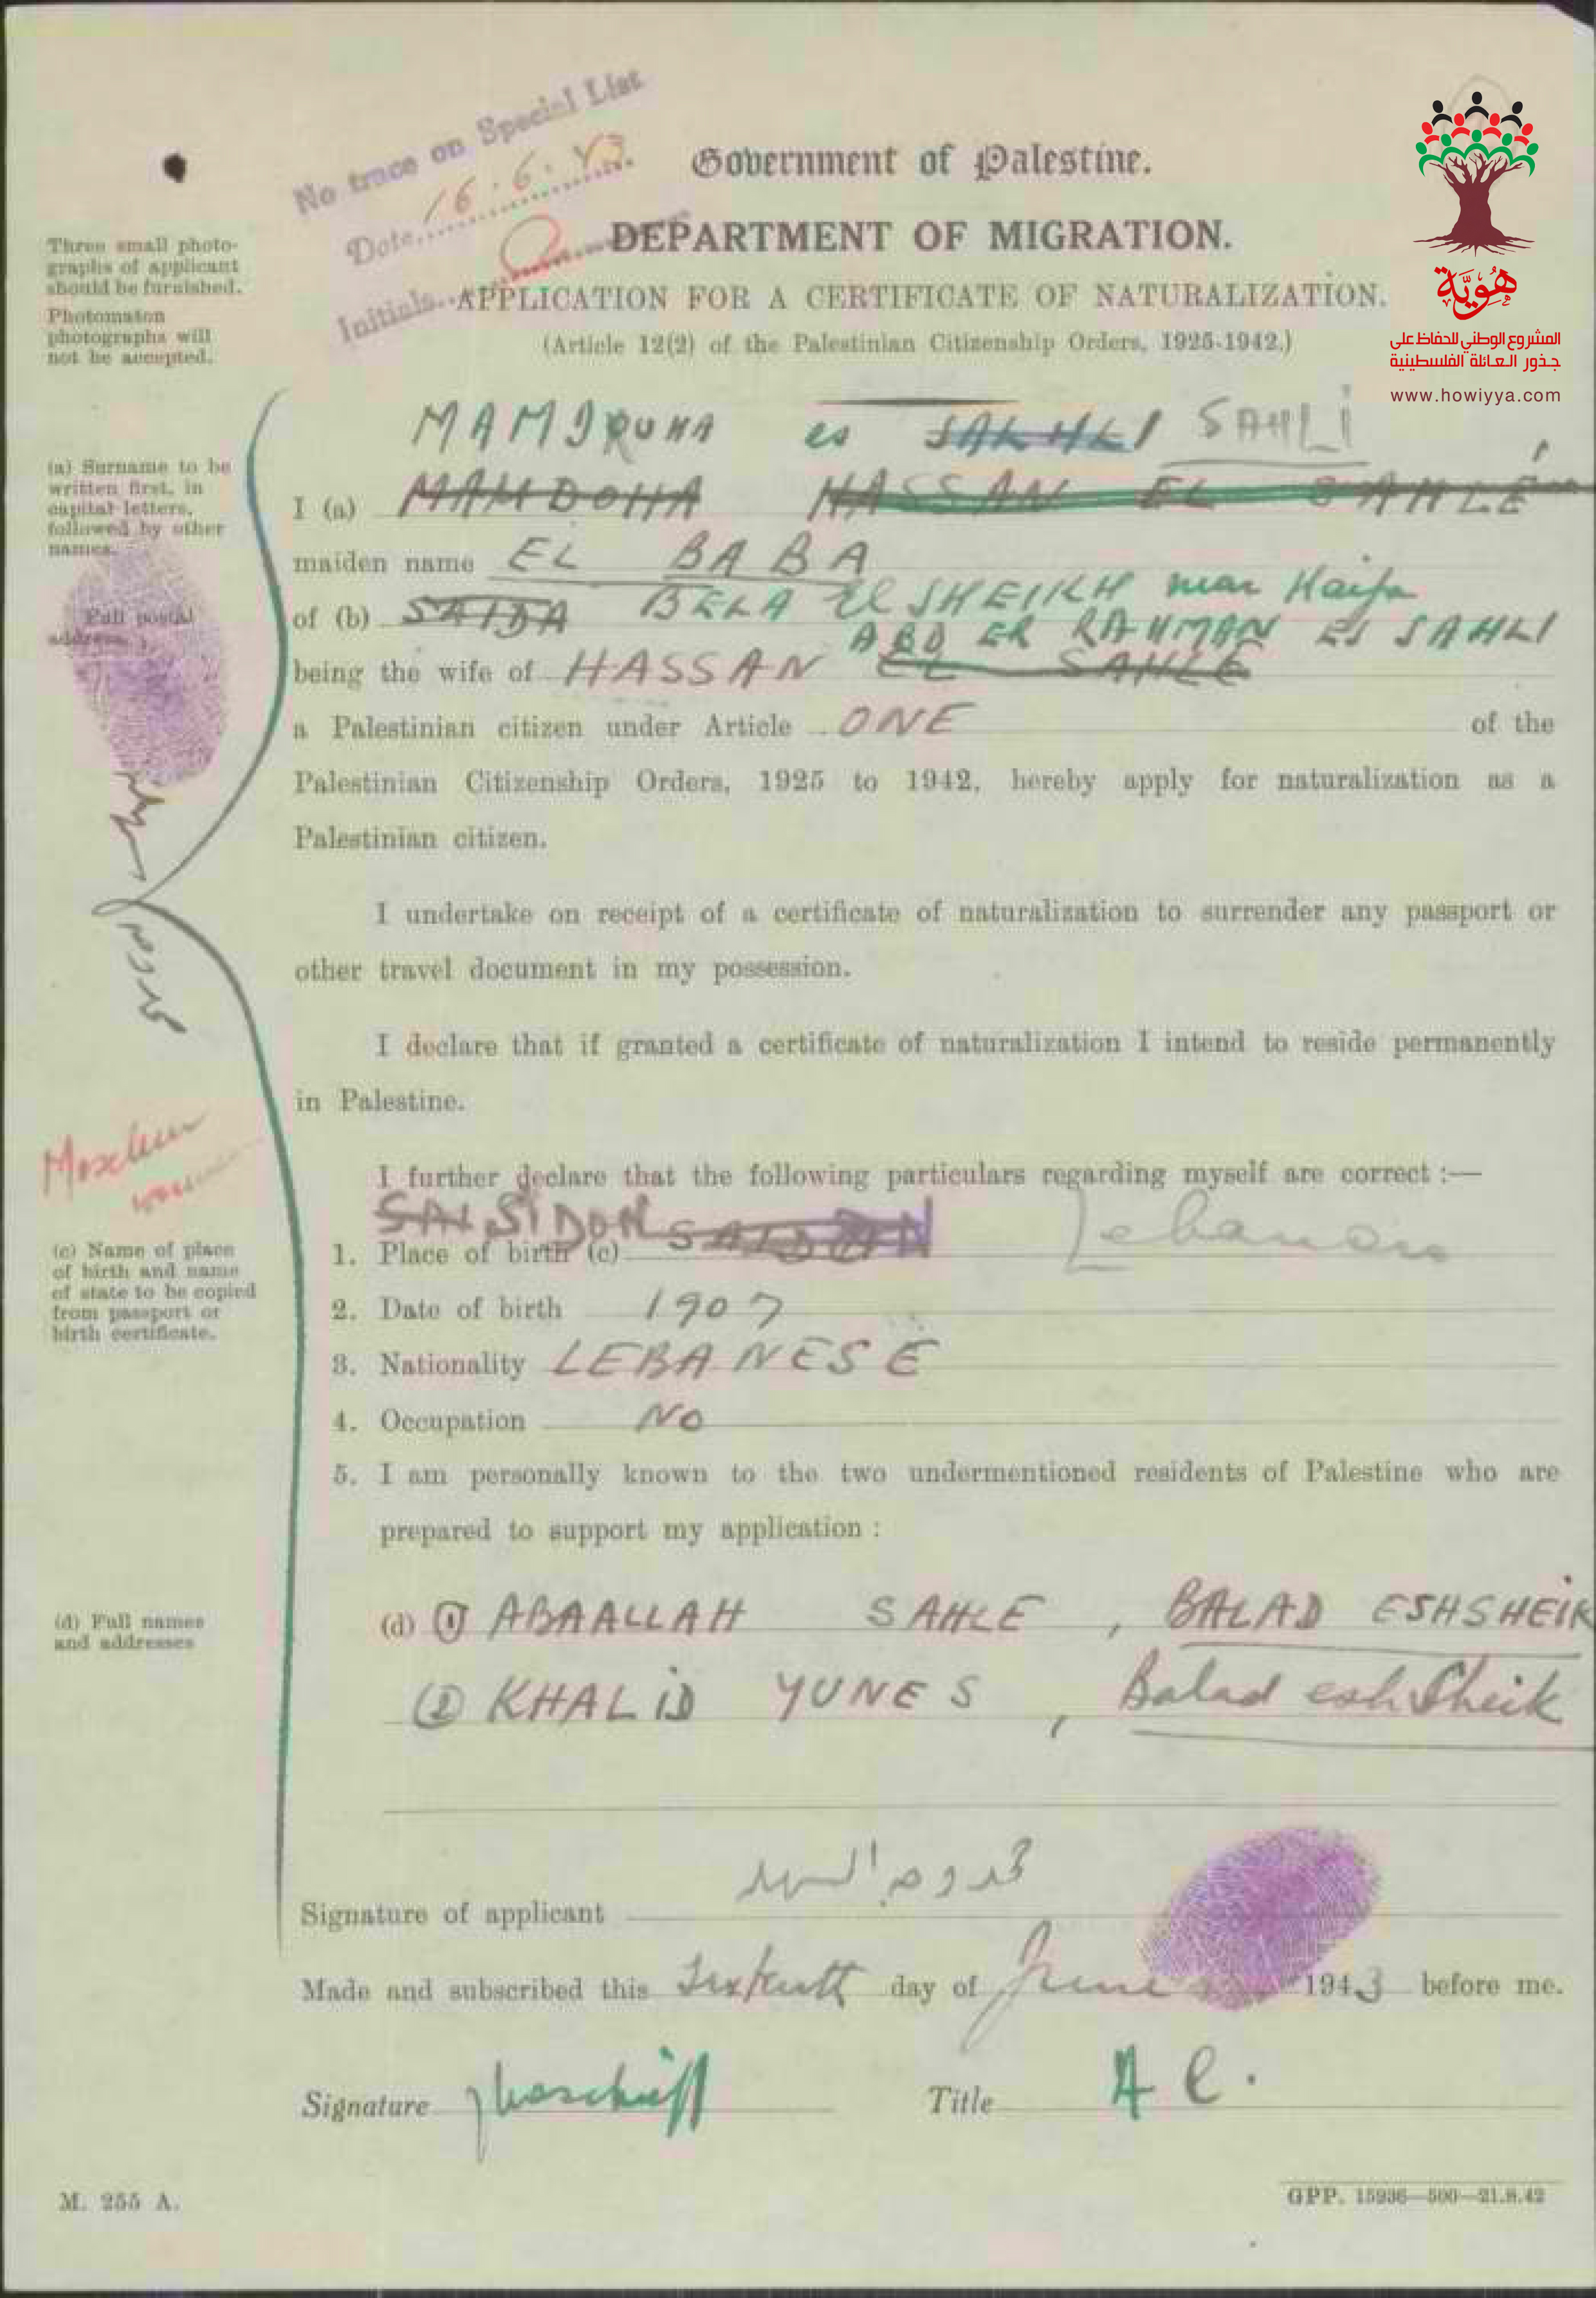 No trace on Special List
Date 16.6.43
Initials
Government of Palestine.
DEPARTMENT OF MIGRATION.
APPLICATION FOR A CERTIFICATE OF NATURALIZATION.
(Article 12(2) of the Palestinian Citizenship Orders, 1925-1942.)
هُوِيَّة
المشروع الوطني للحفاظ على
جذور العائلة الفلسطينية
www.howiyya.com
Three small photo-
graphs of applicant
should be furnished.
Photomaton
photographs will
not be accepted.
es SAHLI
(a) Surname to be
written first, in
capital letters,
followed by other
names.
I (a) MAMDOHA HASSAN EL SAHLE
maiden name EL BABA
Full postal
address.
of (b) SAIDA BELA El SHEIKH near Haifa
ABD ER RAHMAN ES SAHLI
being the wife of HASSAN EL SAHLE
a Palestinian citizen under Article ONE of the
Palestinian Citizenship Orders, 1925 to 1942, hereby apply for naturalization as a
Palestinian citizen.
I undertake on receipt of a certificate of naturalization to surrender any passport or
other travel document in my possession.
I declare that if granted a certificate of naturalization I intend to reside permanently
in Palestine.
Moslem
I further declare that the following particulars regarding myself are correct :—
SIDON
(c) Name of place
of birth and name
of state to be copied
from passport or
birth certificate.
1. Place of birth (c) Lebanon
2. Date of birth 1907
3. Nationality LEBANESE
4. Occupation NO
5. I am personally known to the two undermentioned residents of Palestine who are
prepared to support my application :
(d) Full names
and addresses
(d) (1) ABAALLAH SAHLE , BALAD ESHSHEIK
(2) KHALID YUNES , Balad esh Sheik
Signature of applicant
Made and subscribed this Sixteenth day of June 1943 before me.
Signature
Title A C.
M. 255 A.
GPP. 15936—500—21.8.42